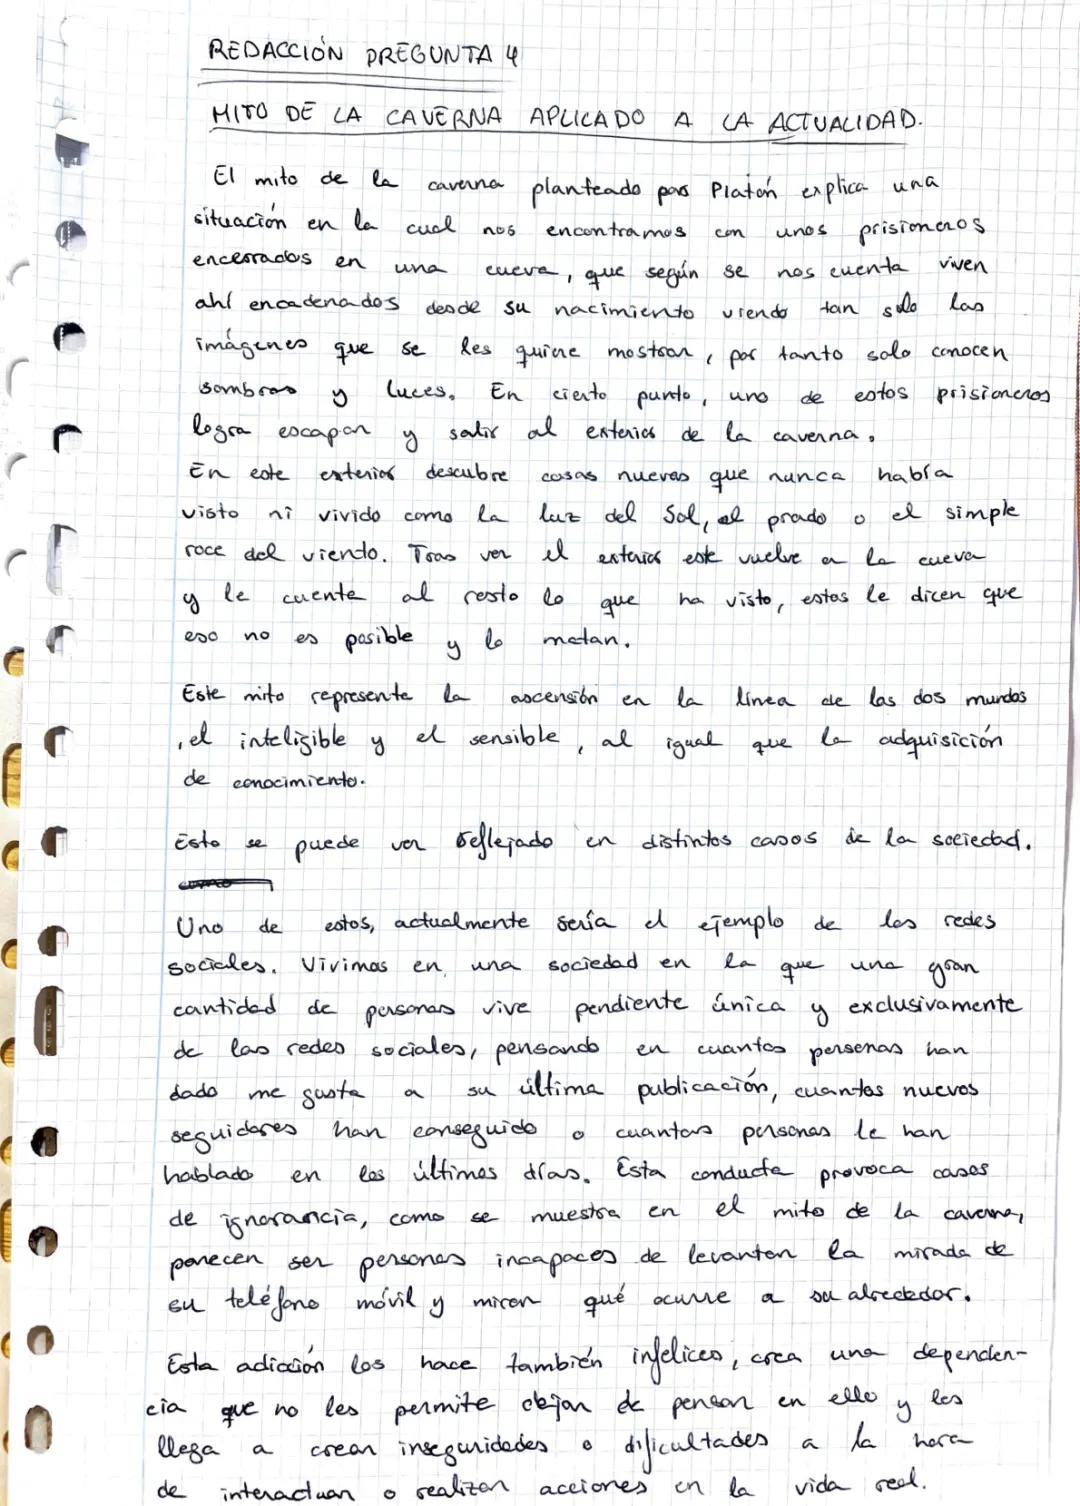 REDACCIÓN PREGUNTA 4
MITO DE LA CAVERNA APLICADO A LA ACTUALIDAD.
El mito de la caverna planteado por Platón explica una
situación en la cual nos encontramos con unos prisioneros
encerrados en una cueva, que según se nos cuenta viven
ahí encadenados desde su nacimiento viendo tan solo las
imágenes que se les quiere mostrar, por tanto solo conocen
sombras y luces. En cierto punto, uno de estos prisioneros
logra escapar y salir al exterior de la caverna.
En este exterior descubre cosas nuevas que nunca había
visto ni vivido como la luz del Sol, el prado o el simple
roce del viento. Tras ver el exterior este vuelve a la cueva
y le cuenta al resto lo que ha visto, estos le dicen que
eso no es posible y lo matan.
Este mito representa la ascensión en la línea de los dos mundos
, el inteligible y el sensible, al igual que la adquisición
de conocimiento.
Esto se puede ver reflejado en distintos casos de la sociedad.
Uno de estos, actualmente sería el ejemplo de las redes
sociales. Vivimos en una sociedad en la que una gran
cantidad de personas vive pendiente única y exclusivamente
de las redes sociales, pensando en cuantas personas han
dado me gusta a su última publicación, cuantos nuevos
seguidores han conseguido o cuantas personas le han
hablado en los últimos días. Esta conducta provoca casos
de ignorancia, como se muestra en el mito de la caverna,
parecen ser personas incapaces de levantar la mirada de
su teléfono móvil y mirar qué ocurre a su alrededor.
Esta adicción los hace también infelices, crea una dependen-
cia que no les permite dejar de pensar en ello y les
llega a crear inseguridades o dificultades a la hora
de interactuar o realizar acciones en la vida real.